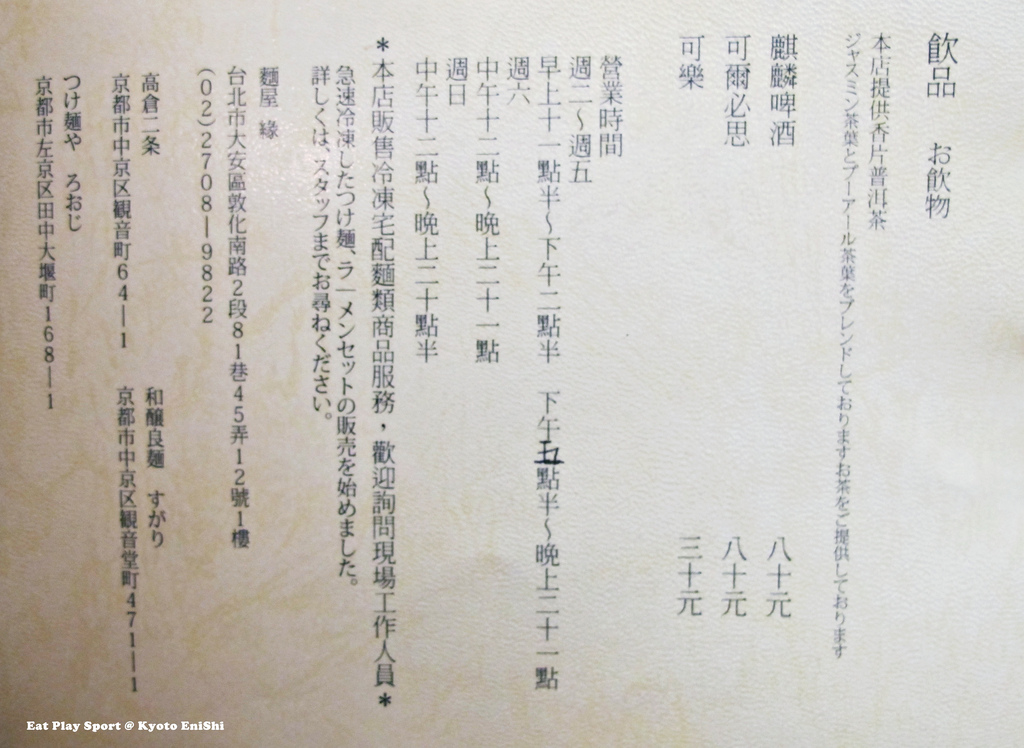 飲品　お飲物
本店提供香片普洱茶
ジャスミン茶葉とプーアール茶葉をブレンドしておりますお茶をご提供しております
麒麟啤酒　八十元
可爾必思　八十元
可樂　三十元
營業時間
週二～週五
早上十一點半～下午二點半　下午五點半～晚上二十一點
週六
中午十二點～晚上二十一點
週日
中午十二點～晚上二十點半
*本店販售冷凍宅配麵類商品服務，歡迎詢問現場工作人員*
急速冷凍したつけ麺、ラーメンセットの販売を始めました。
詳しくは、スタッフまでお尋ねください。
麵屋 緣
台北市大安區敦化南路2段81巷45弄12號1樓
(02)2708—9822
高倉二条
京都市中京区観音町64—1
和醸良麺　すがり
京都市中京区観音堂町471—1
つけ麺や　ろおじ
京都市左京区田中大堰町168—1
Eat Play Sport @ Kyoto EniShi